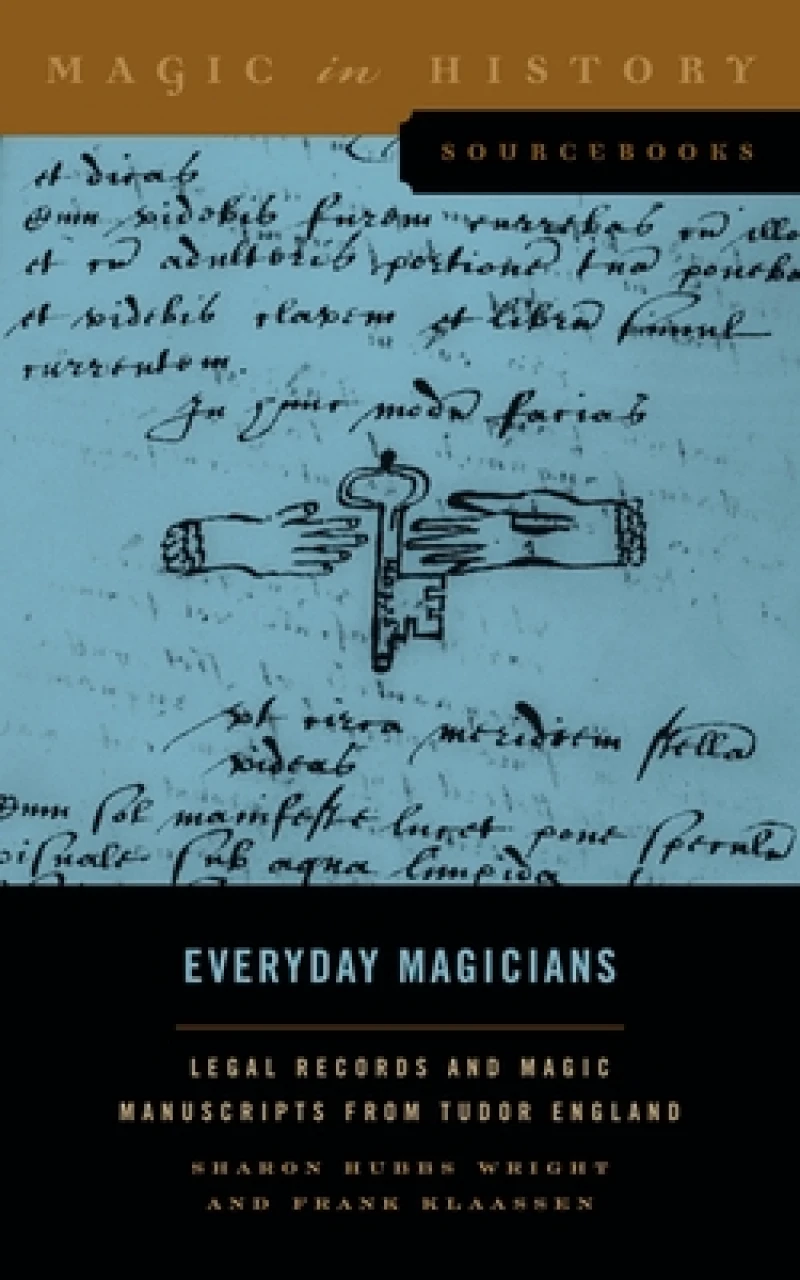 MAGIC in HISTORY
SOURCEBOOKS
et dicas
Dum videbis furem currebas cū illo
et cū adulteris portionē tuā poneba
et videbis clavem et librū simul
currentem.
modū facias
vt circa meridiem stella
videas
Dum sol manifeste lucet pone speculū
visuale sub aqua limpida
EVERYDAY MAGICIANS
LEGAL RECORDS AND MAGIC
MANUSCRIPTS FROM TUDOR ENGLAND
SHARON HUBBS WRIGHT
AND FRANK KLAASSEN